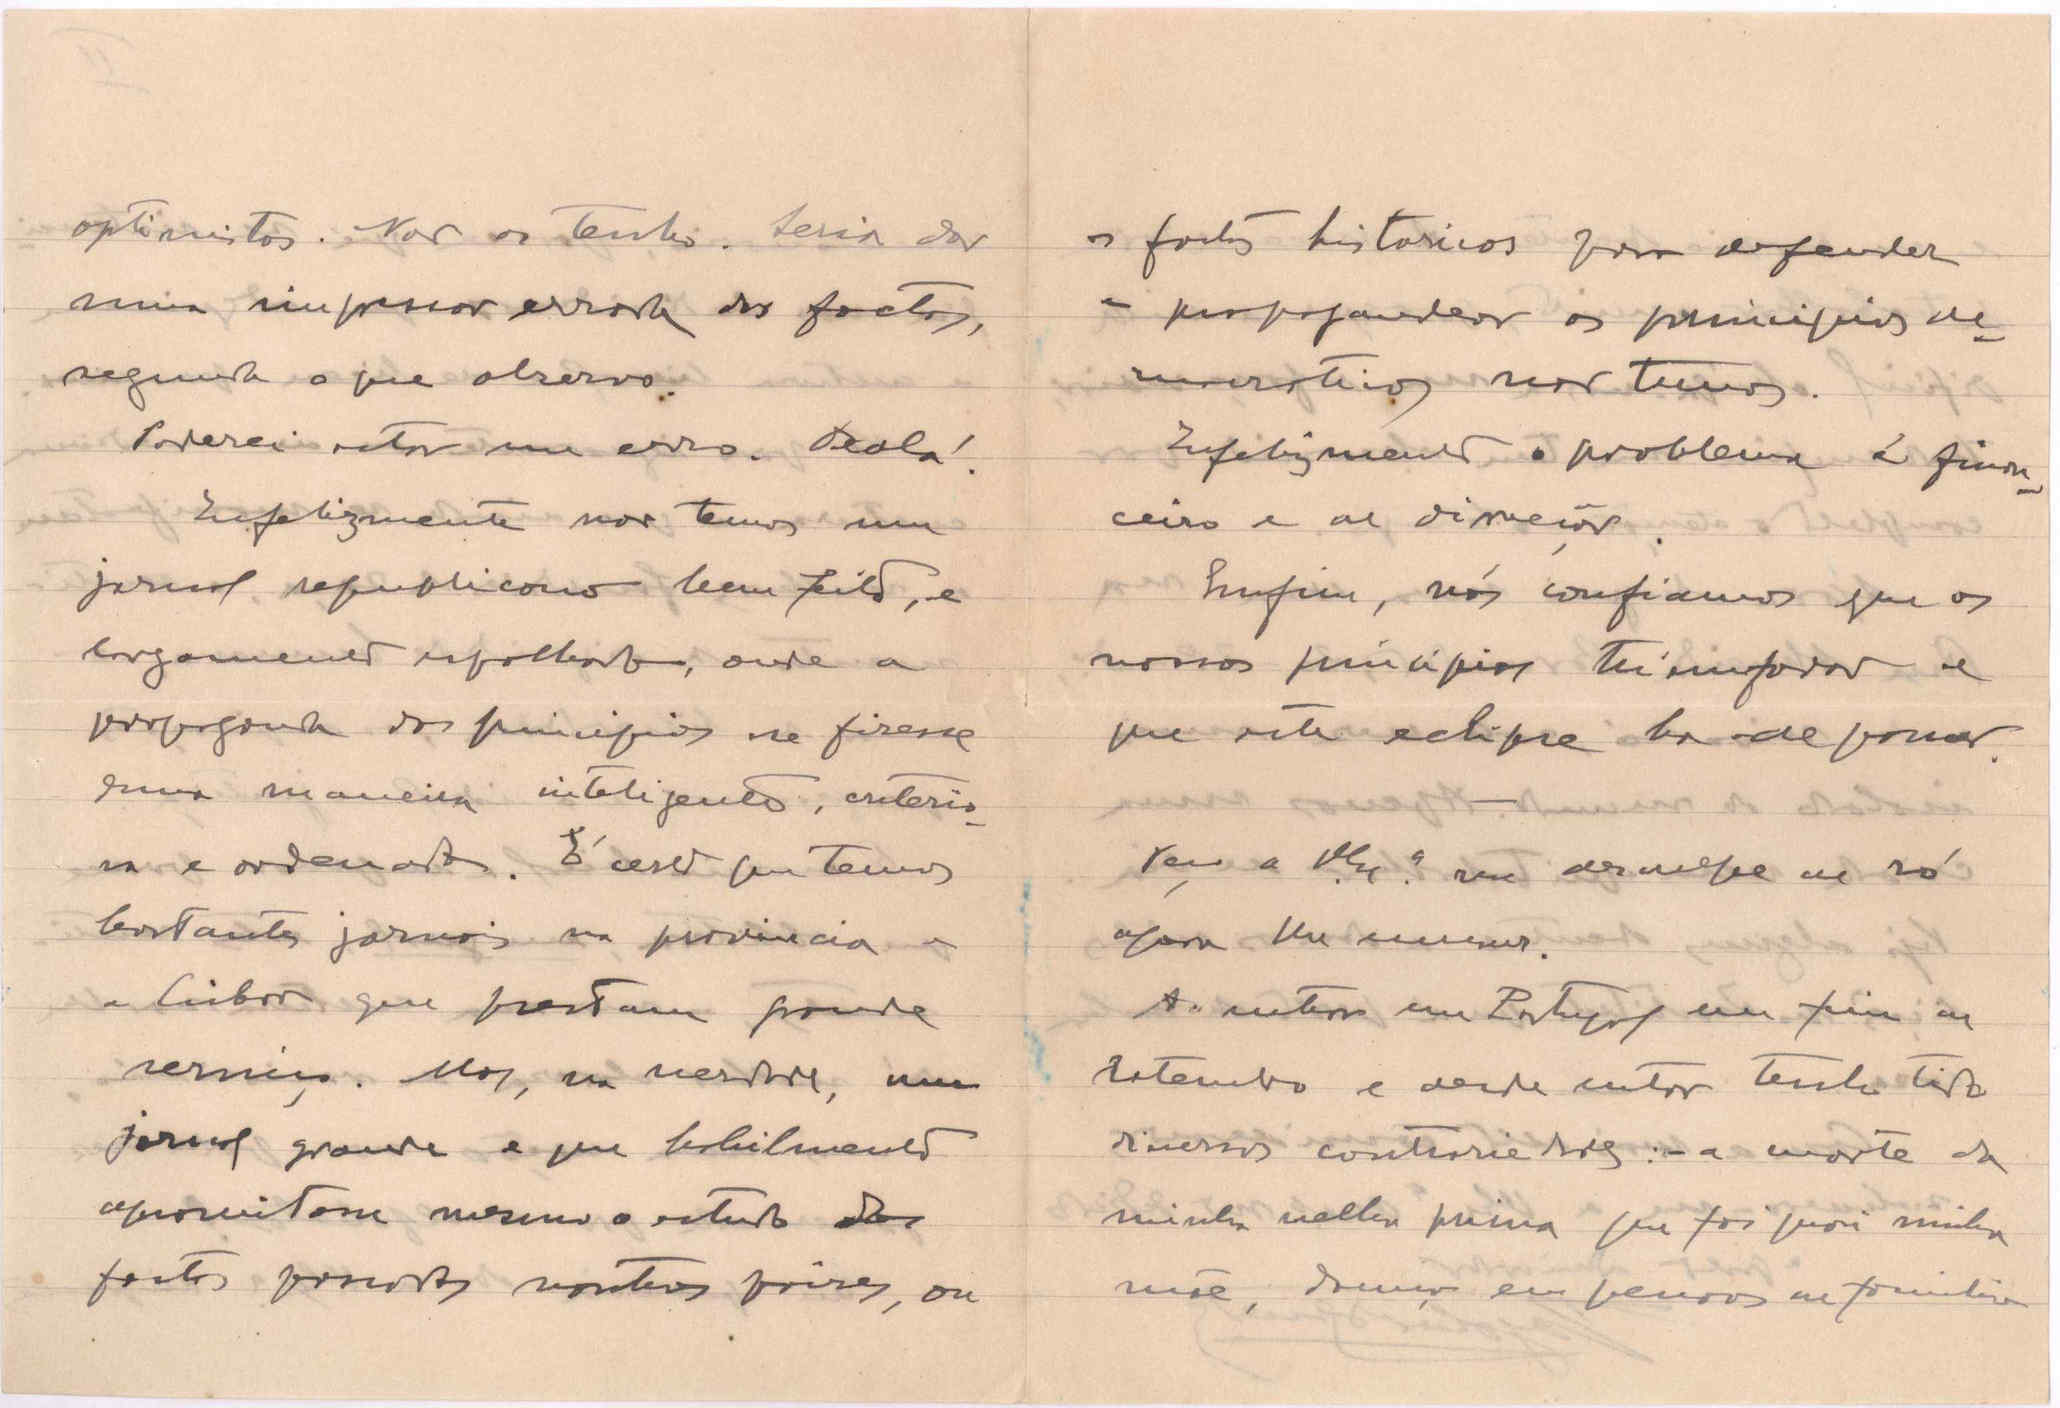 optimistas. Não os tenho. Seria dar
uma impressão errada dos factos,
segundo o que observo.
Poderei estar em erro. Oxalá!
Infelizmente não temos um
jornal republicano bem feito, e
largamente espalhado, onde a
propaganda dos principios se fizesse
duma maneira inteligente, criterio-
sa e ordenada. É certo que temos
bastantes jornais na provincia e
a Lisboa que prestam grande
serviço. Mas, na verdade, um
jornal grande e que habilmente
aproveitasse mesmo o estudo dos
factos passados noutros paises, ou
os factos historicos para defender
e propagandear os principios de-
mocraticos não temos.
Infelizmente o problema é finan-
ceiro e de direcção.
Emfim, nós confiamos que os
nossos principios triumfarão e
que este eclipse ha-de passar.
Peço a V. Ex.ª me desculpe de só
agora lhe escrever.
A. entrou em Portugal em fim de
Setembro e desde então tenho tido
diversas contrariedades:- a morte da
minha velha prima que foi quasi minha
mãe, doença em pessoas de familia